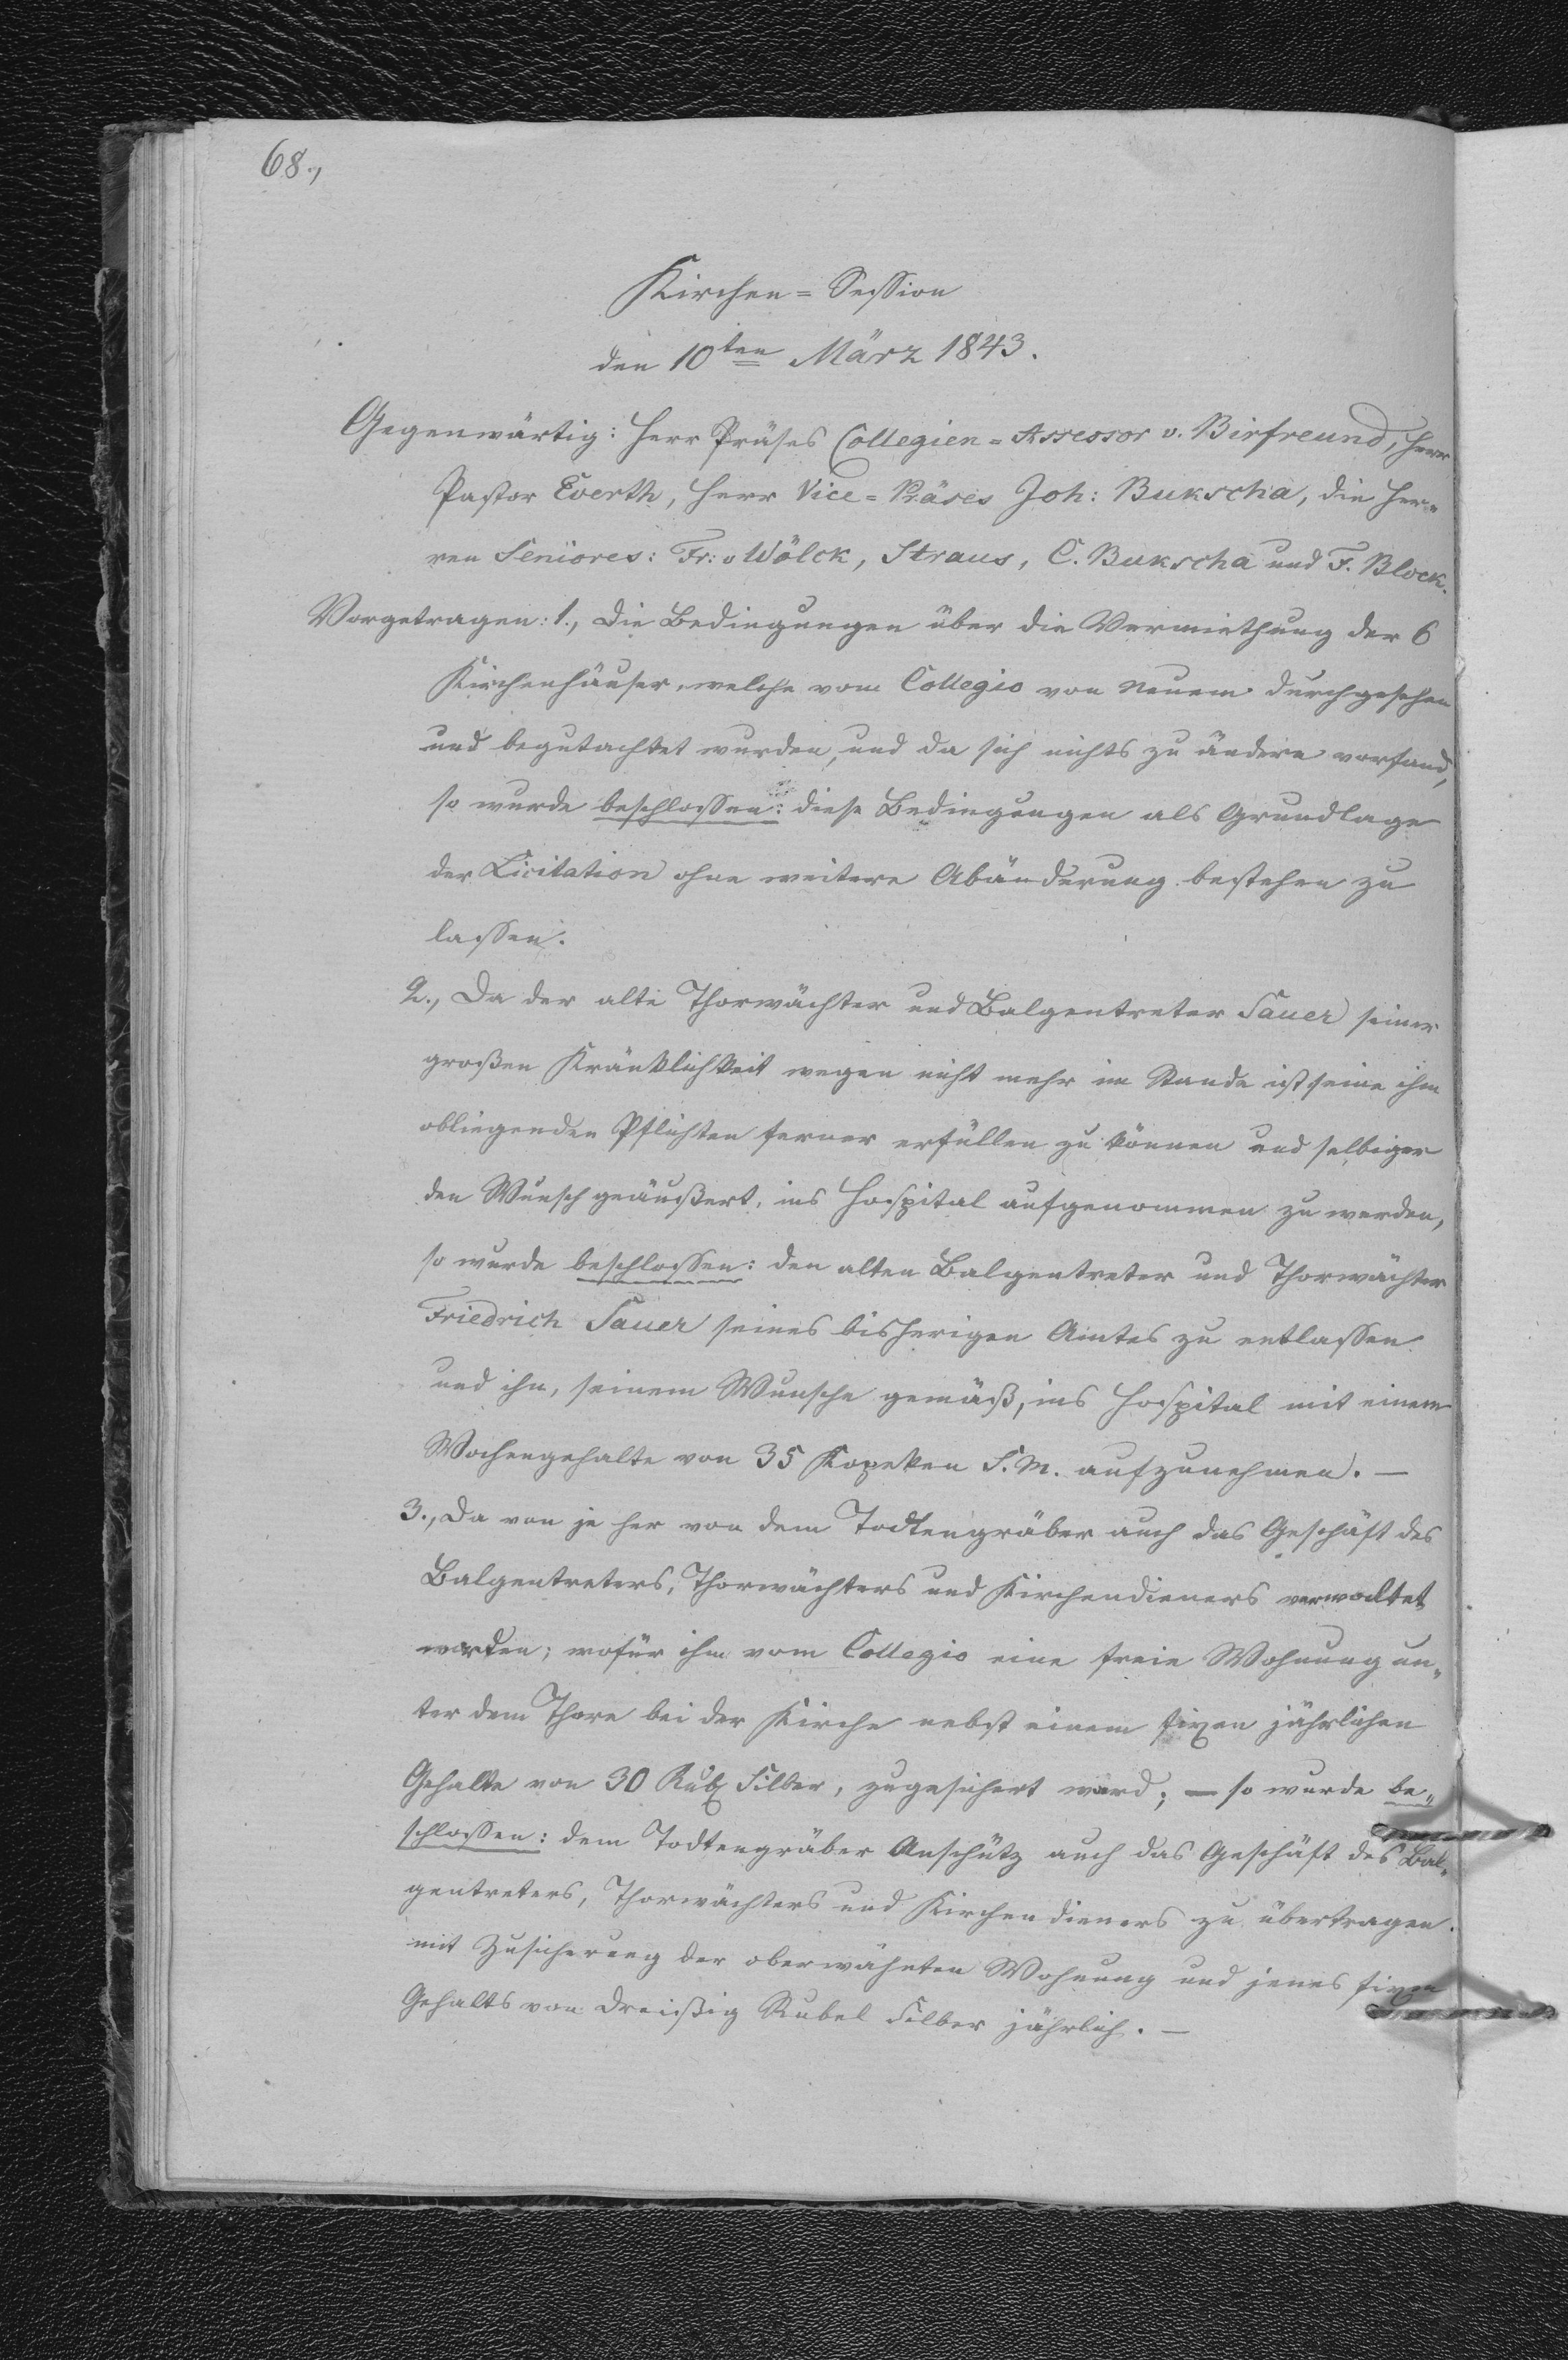 68.,
Kirchen=Session
den 10ten März 1843.
Gegenwärtig: Herr Präses Collegien=Assessor v. Birfreund, Herr
Pastor Everth, Herr Vice=Präses Joh: Bukscha, die Her„
ren Seniores: Fr: v Wölck, Straus, C. Bukscha und F. Block.
Vorgetragen: 1., Die Bedingungen über die Vermiethung der 6
Kirchenhäuser, welche vom Collegio von Neuem durchgesehen
und begutachtet wurden, und da sich nichts zu ändern vorfand,
so wurde beschlossen: diese Bedingungen als Grundlage
der Licitation ohne weitere Abänderung bestehen zu
lassen.
2., Da der alte Thorwächter und Balgentreter Sauer seiner
großen Kränklichkeit wegen nicht mehr im Stande ist seine ihm
obliegenden Pflichten ferner erfüllen zu können und selbiger
den Wunsch geäußert, ins Hospital aufgenommen zu werden,
so wurde beschlossen: den alten Balgentreter und Thorwächter
Friedrich Sauer seines bisherigen Amtes zu entlassen
und ihn, seinem Wunsche gemäß, ins Hospital mit einem
Wochengehalte von 35 Kopeken S. M. aufzunehmen. —
3., Da von je her von dem Todtengräber auch das Geschäft des
Balgentreters, Thorwächters und Kirchendieners verwaltet
worden; wofür ihm vom Collegio eine freie Wohnung un„
ter dem Thore bei der Kirche nebst einem fixen jährlichen
Gehalte von 30 Rub Silber, zugesichert ward; — so wurde be„
schlossen: dem Todtengräber Anschütz auch das Geschäft des Bal„
gentreters, Thorwächters und Kirchendieners zu übertragen.
mit Zusicherung der oberwähnten Wohnung und jenes fixen
Gehalts von dreißig Rubel Silber jährlich. —